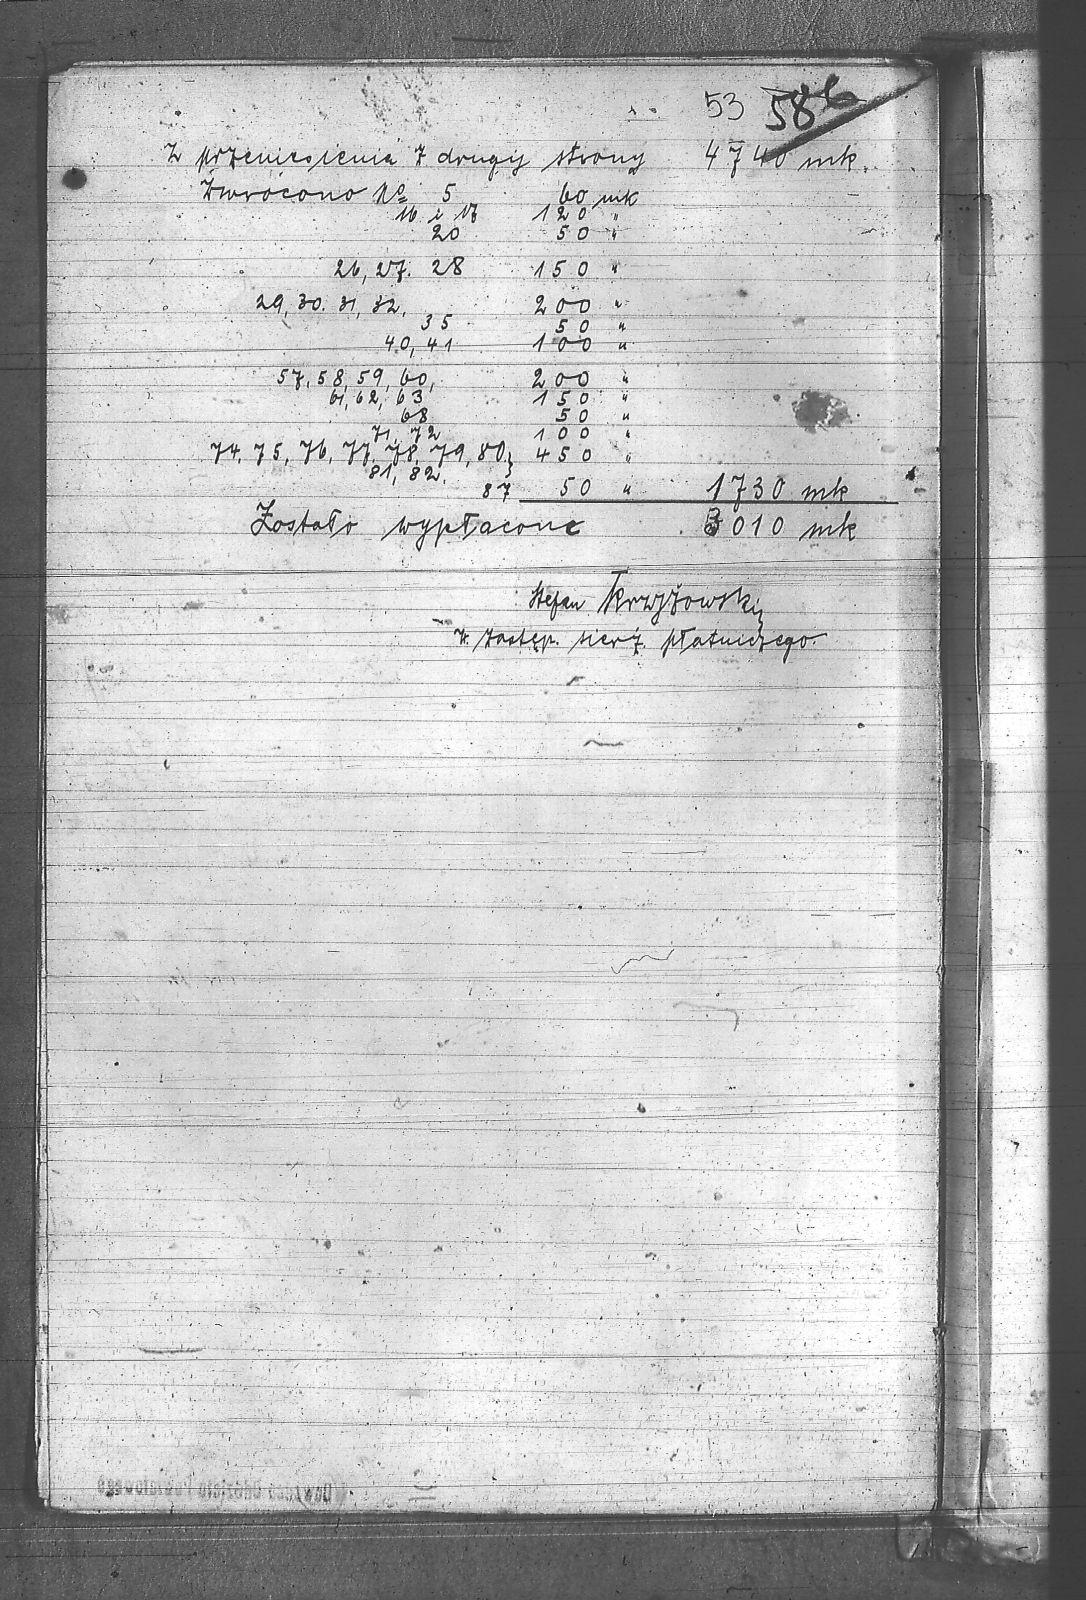 53 58b
Z przeniesienia z drugij strony 4740 mk.
Zwrócono No 5 60 mk
16 i 17 120 "
20 50 "
26, 27. 28 150 "
29, 30. 31, 32, 200 "
35 50 "
40, 41 100 "
57, 58, 59, 60, 200 "
61, 62, 63 150 "
68 50 "
71, 72 100 "
74, 75, 76, 77, 78, 79, 80, } 450 "
81, 82.
87 50 " 1730 mk
Zostało wypłacone 3010 mk
Stefan Krzyżowski
w zastęp. sierż. płatniczego.